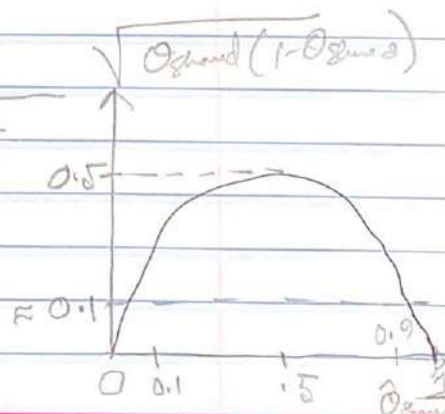 √θshared(1-θshared)
0.5
≈ 0.1
0.9
0 0.1 .5 θ̂